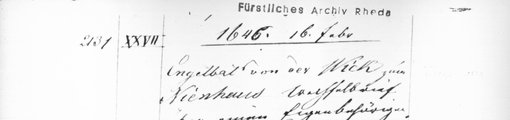 Fürstliches Archiv Rheda
2131 XXVII 1646. 16. Febr
Engelbat von der Wick zum
Nienhaus Wechselbrief
einen Eigenbehörigen